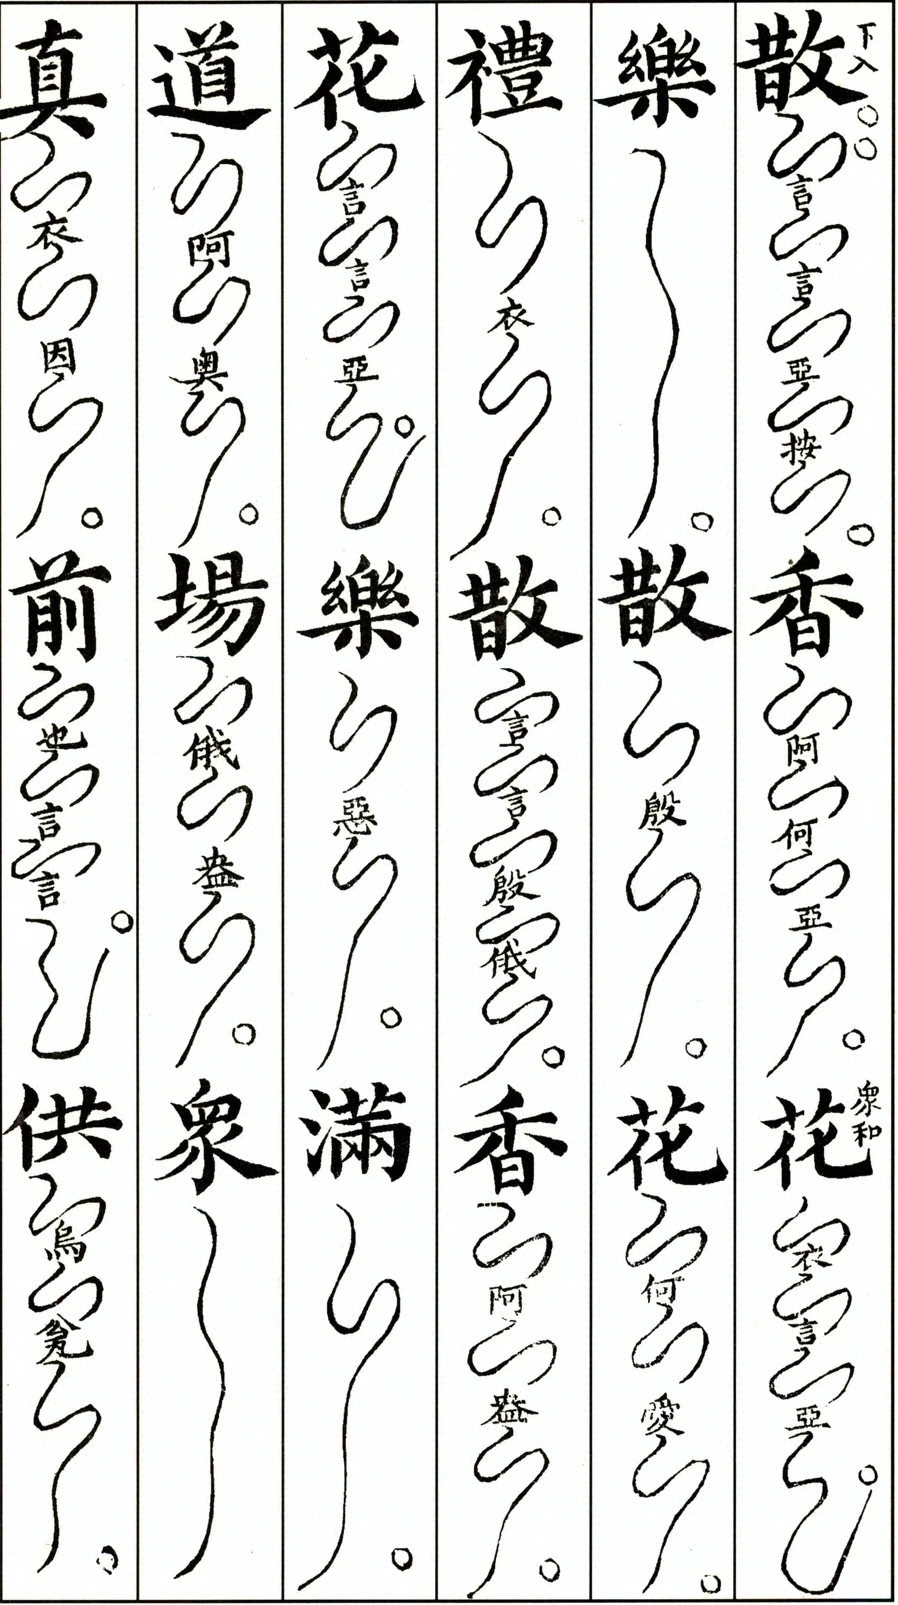 下入 散 言 言 亞 按 香 阿 何 亞 眾和 花 衣 言 亞
樂 散 殷 花 何 愛
禮 衣 散 言 言 殷 俄 香 阿 盎
花 言 言 亞 樂 惡 滿
道 阿 奧 場 俄 盎 眾
真 衣 因 前 也 言 言 供 烏 瓮